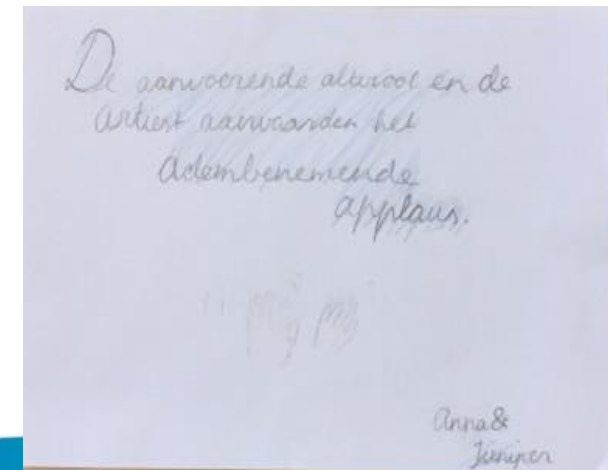 De aanvoerende altviool en de
artiest aanvaarden het
adembenemende
applaus.
Anna &
Juniper